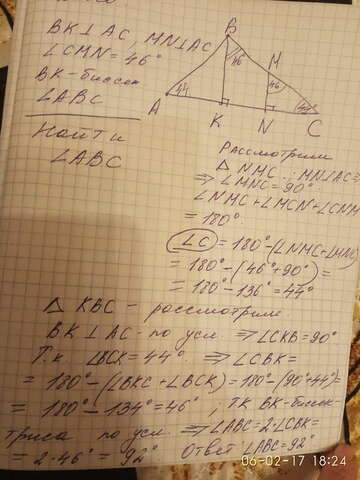 BK⊥AC, MN⊥AC
∠CMN = 46°
BK - биссек
∠ABC
Найти
∠ABC
B
46
M
46
A
44
44°
K
N
C
Рассмотрим
Δ NMC ; MN⊥AC ⇒
⇒ ∠MNC = 90°
∠NMC + ∠MCN + ∠CNM
= 180°
∠C = 180° - (∠NMC + ∠MNC)
= 180° - (46° + 90°) =
= 180° - 136° = 44°
Δ KBC - рассмотрим
BK ⊥ AC - по усл. ⇒ ∠CKB = 90°
Т.к ∠BCK = 44° ⇒ ∠CBK =
= 180° - (∠BKC + ∠BCK) = 180° - (90° + 44°) =
= 180° - 134° = 46° , тк BK - биссек-
триса по усл. ⇒ ∠ABC = 2·∠CBK =
= 2·46° = 92° Ответ: ∠ABC = 92°
06-02-17 18:24